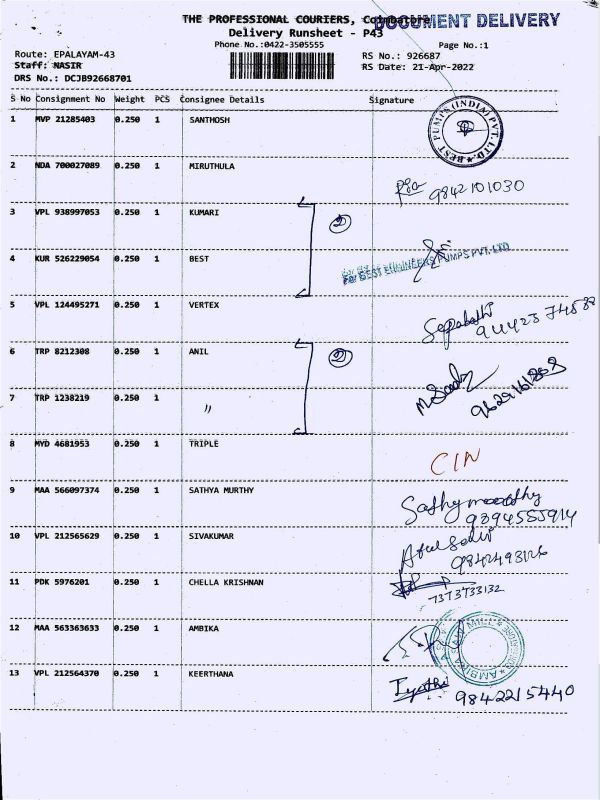 THE PROFESSIONAL COURIERS, Coimbatore
DOCUMENT DELIVERY
Delivery Runsheet - P43
Phone No.:0422-3505555
Page No.:1
Route: EPALAYAM-43
RS No.: 926687
Staff: NASIR
RS Date: 21-Apr-2022
DRS No.: DCJB92668701
S No Consignment No Weight PCS Consignee Details Signature
1 MVP 21285403 0.250 1 SANTHOSH
BEST PUMPS (INDIA) PVT. LTD.
2 NDA 700027089 0.250 1 MIRUTHULA
9842101030
3 VPL 938997053 0.250 1 KUMARI
2
4 KUR 526229054 0.250 1 BEST
For BEST ENGINEERS PUMPS PVT. LTD
5 VPL 124495271 0.250 1 VERTEX
6 TRP 8212308 0.250 1 ANIL
2
7 TRP 1238219 0.250 1 〃
8 MYD 4681953 0.250 1 TRIPLE
CIN
9 MAA 566097374 0.250 1 SATHYA MURTHY
Sathymoorthy
9894555914
10 VPL 212565629 0.250 1 SIVAKUMAR
11 PDK 5976201 0.250 1 CHELLA KRISHNAN
7373733132
12 MAA 563363633 0.250 1 AMBIKA
13 VPL 212564370 0.250 1 KEERTHANA
Jyothi
9842215440